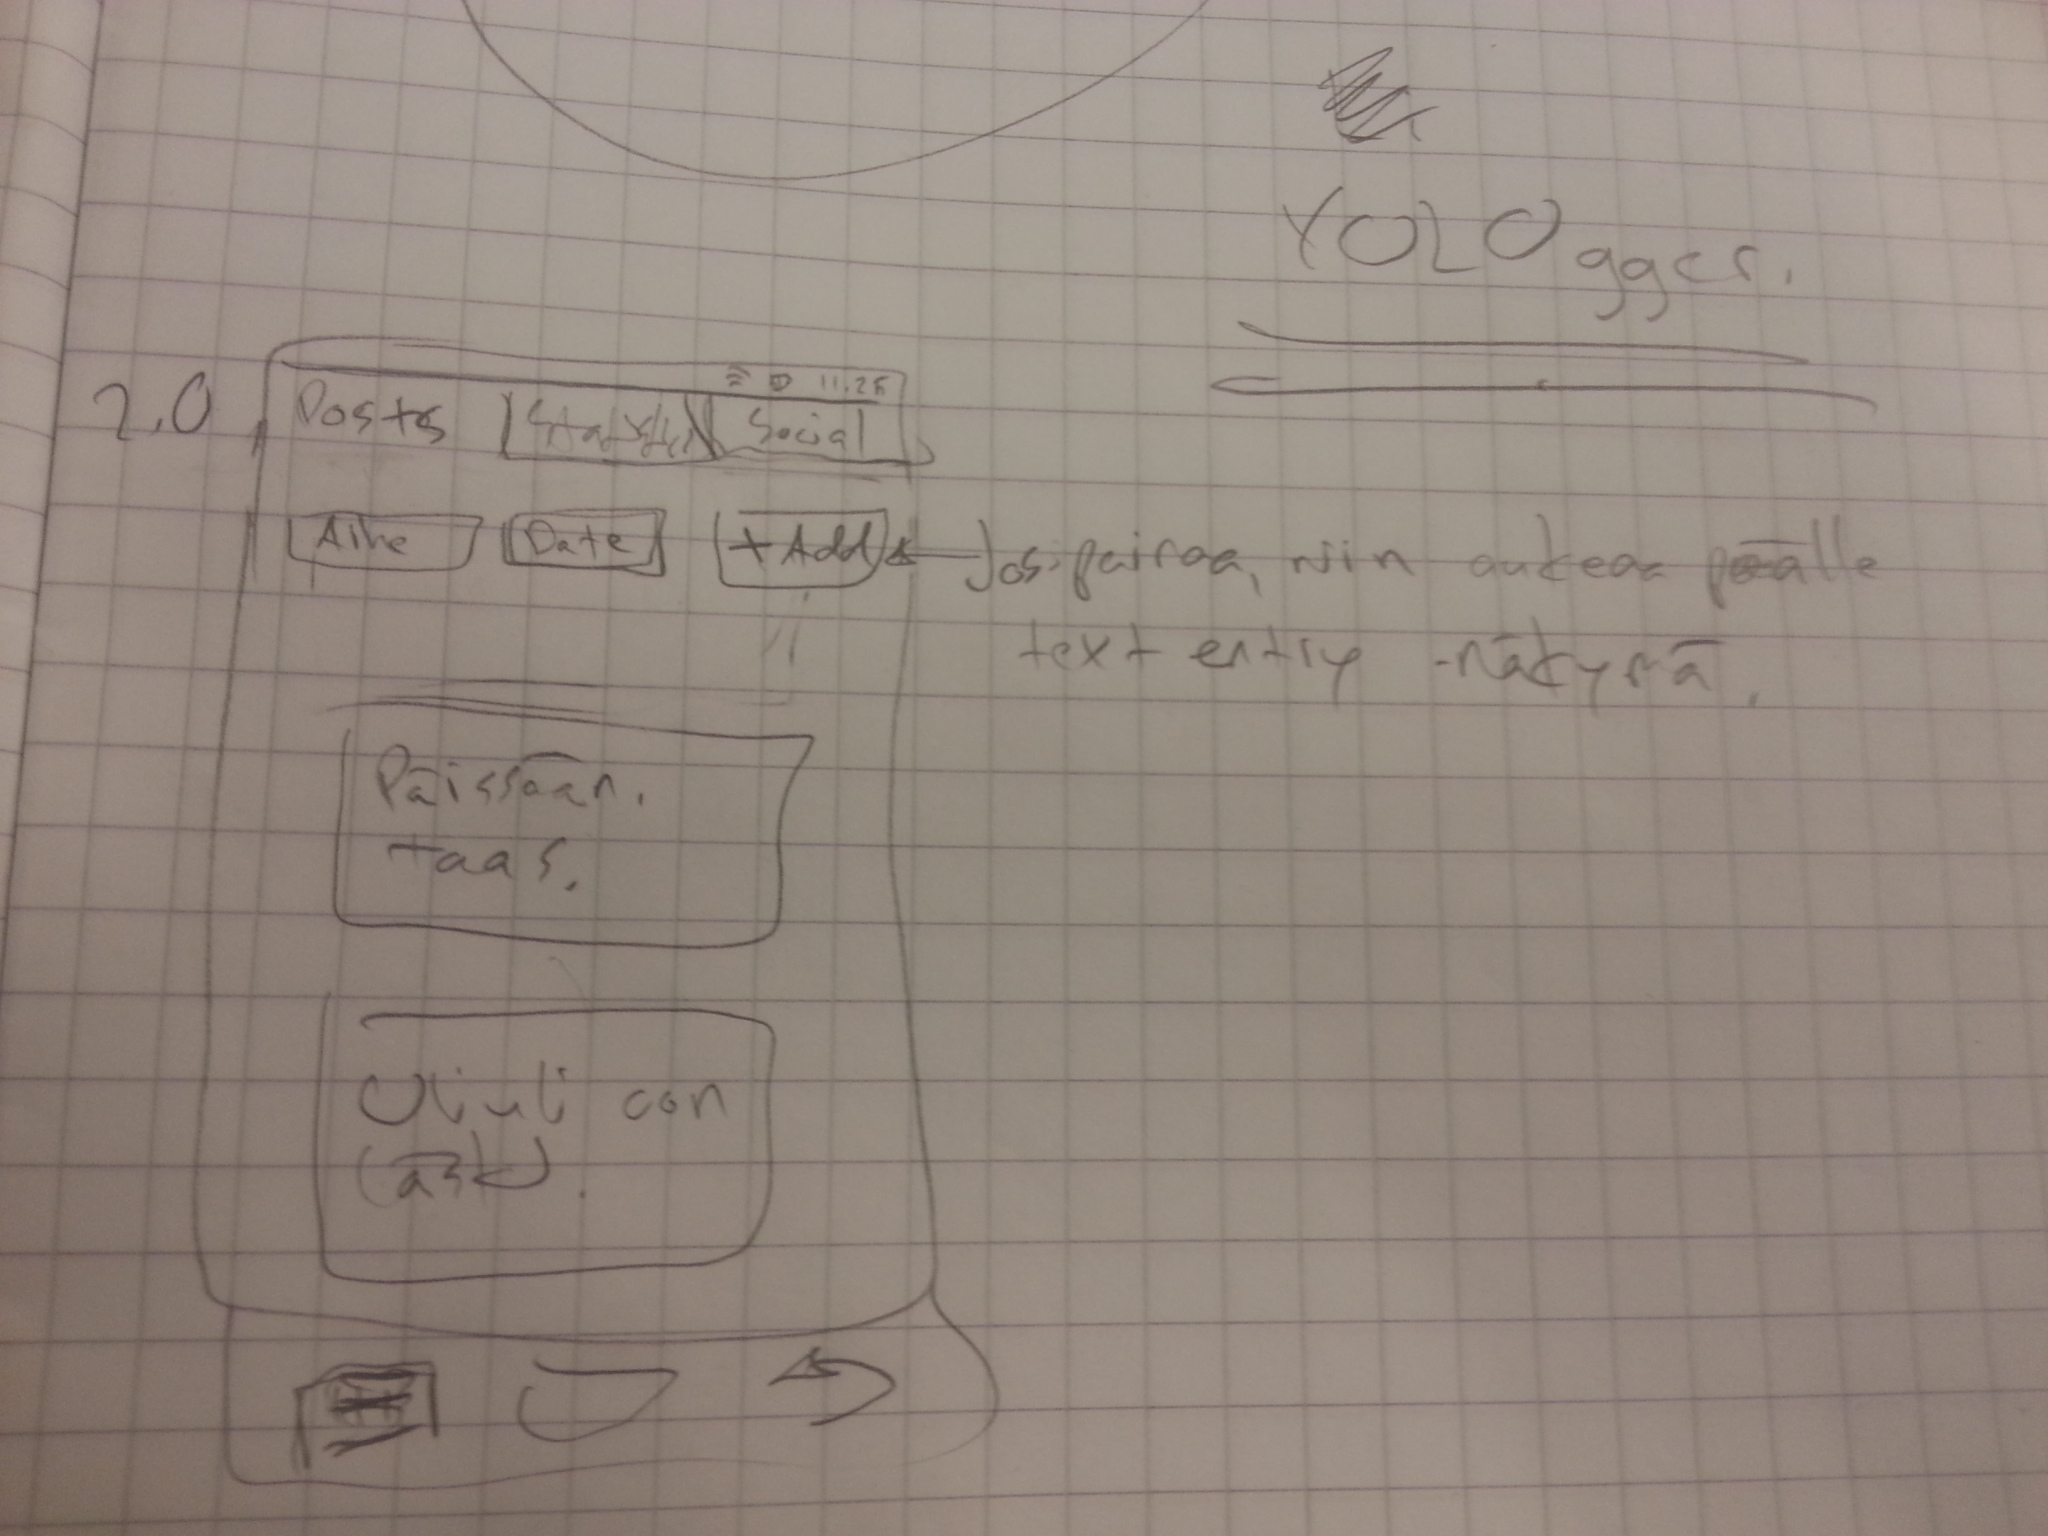 YOLOgger.
2.0
11.25
Posts Statistics Social
Aihe Date + Add
Jos painaa, niin aukeaa päälle
text entry -näkymä.
Päissään.
taas.
Oliuli con